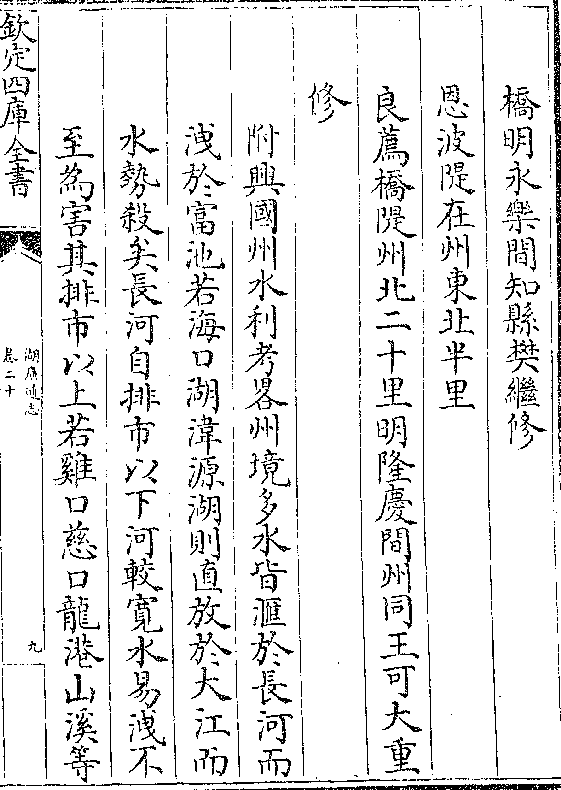 橋明永樂間知縣樊繼修
恩波隄在州東北半里
良薦橋隄州北二十里明隆慶間州同王可大重
修
附興國州水利考畧州境多水皆滙於長河而
洩於富池若海口湖湋源湖則直放於大江而
水勢殺矣長河自排市以下河較寬水易洩不
至為害其排市以上若雞口慈口龍港山溪等
欽定四庫全書
湖廣通志
卷二十
九